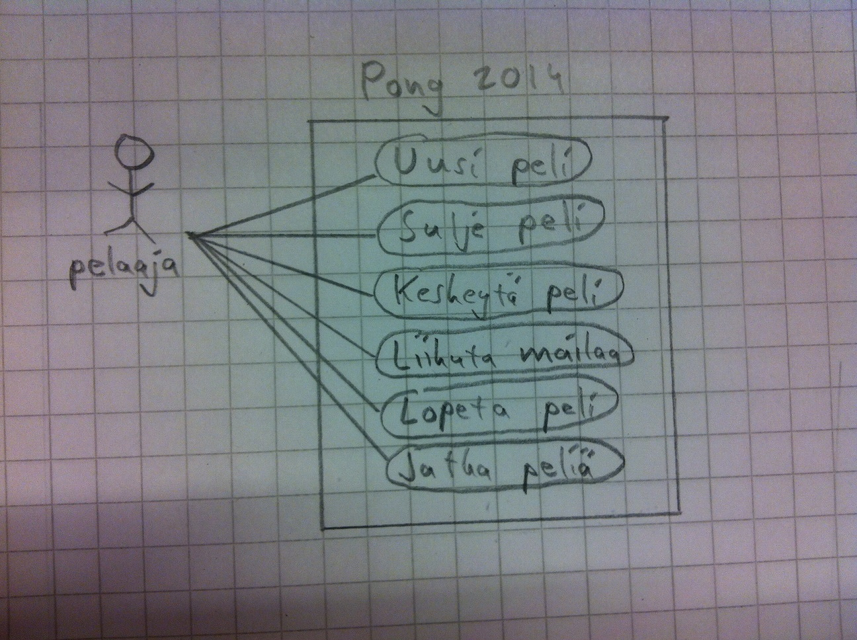 Pong 2014
pelaaja
Uusi peli
Sulje peli
Keskeytä peli
Liikuta mailaa
Lopeta peli
Jatka peliä